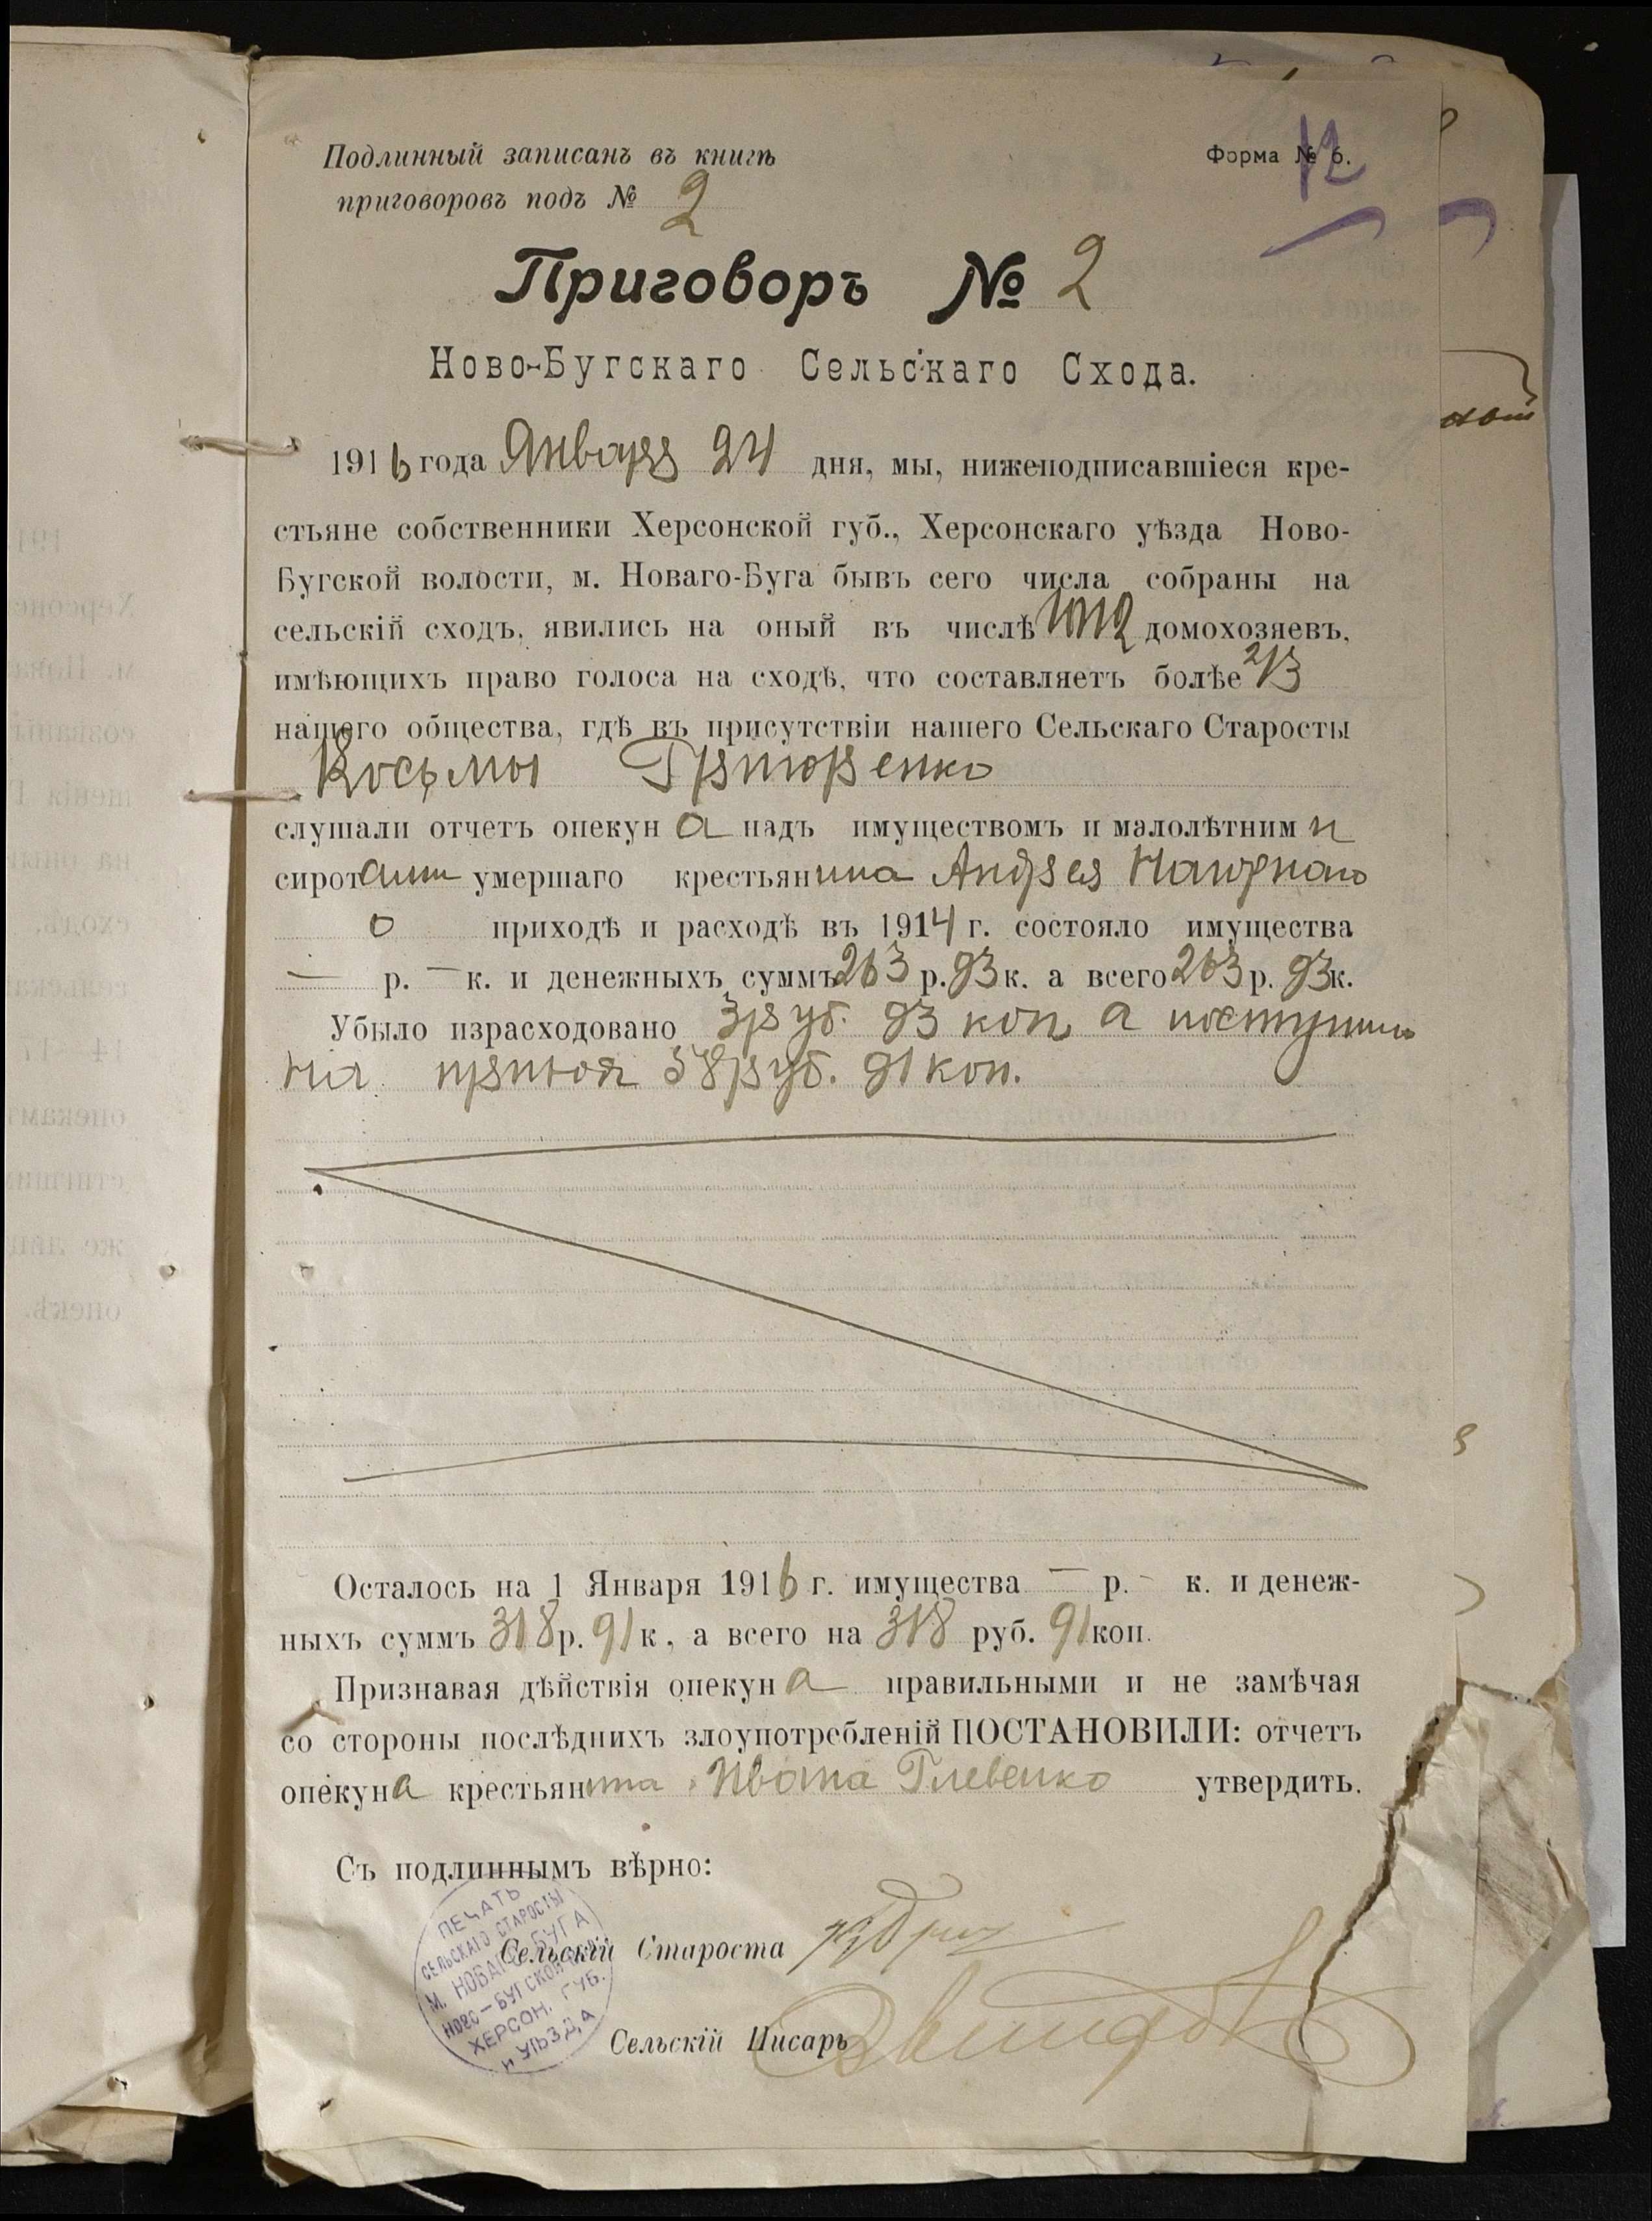 Подлинный записанъ въ книгѣ
Форма № 6.
12
приговоровъ подъ № 2
Приговоръ № 2
Ново-Бугскаго Сельскаго Схода.
1916 года Января 24 дня, мы, нижеподписавшіеся кре-
стьяне собственники Херсонской губ., Херсонскаго уѣзда Ново-
Бугской волости, м. Новаго-Буга бывъ сего числа собраны на
сельскій сходъ, явились на оный въ числѣ домохозяевъ,
имѣющихъ право голоса на сходѣ, что составляетъ болѣе 2/3
нашего общества, гдѣ въ присутствіи нашего Сельскаго Старосты
Косьмы
слушали отчетъ опекуна надъ имуществомъ и малолѣтними
сиротами умершаго крестьянина Андрея
о приходѣ и расходѣ въ 1914 г. состояло имущества
— р. — к. и денежныхъ суммъ 263 р. 93 к. а всего 263 р. 93 к.
Убыло израсходовано 3 руб. 93 коп а поступило
на 58 руб. 91 коп.
Осталось на 1 Января 1916 г. имущества — р. - к. и денеж-
ныхъ суммъ 318 р. 91 к, а всего на 318 руб. 91 коп.
Признавая дѣйствія опекуна правильными и не замѣчая
со стороны послѣднихъ злоупотребленій ПОСТАНОВИЛИ: отчетъ
опекуна крестьянина Ивана Глевенко утвердить.
Съ подлиннымъ вѣрно:
Сельскій Староста
Сельскій Писарь
ПЕЧАТЬ
СЕЛЬСКАГО СТАРОСТЫ
М. НОВАГО-БУГА
НОВО-БУГСКОЙ
ХЕРСОН. ГУБ.
И УѢЗДА